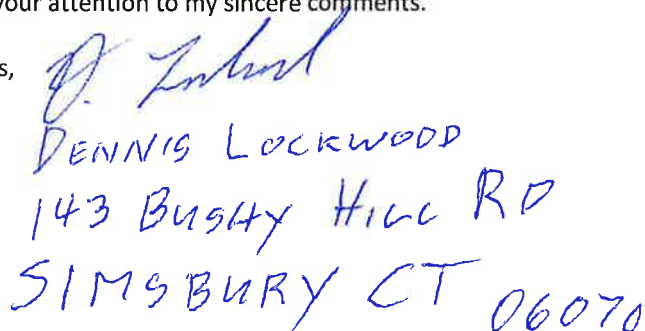 your attention to my sincere comments.
s,
D. Lockwood
DENNIS LOCKWOOD
143 BUSHY HILL RD
SIMSBURY CT 06070